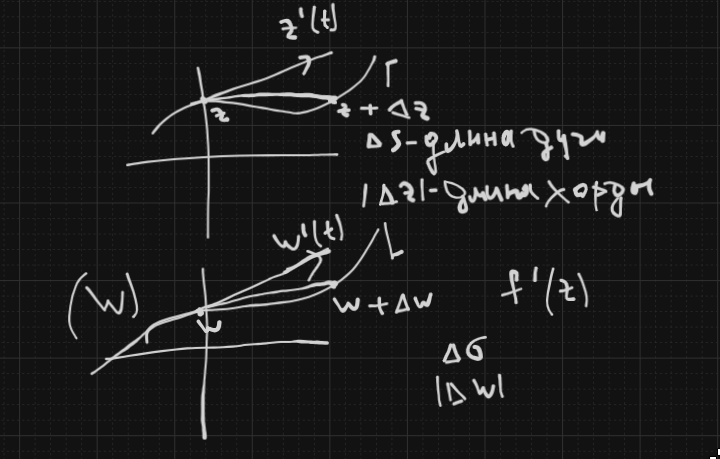 z'(t)
Γ
z
z + Δz
Δs - длина дуги
|Δz| - длина хорды
w'(t)
L
(W)
w
w + Δw
f'(z)
Δσ
|Δw|